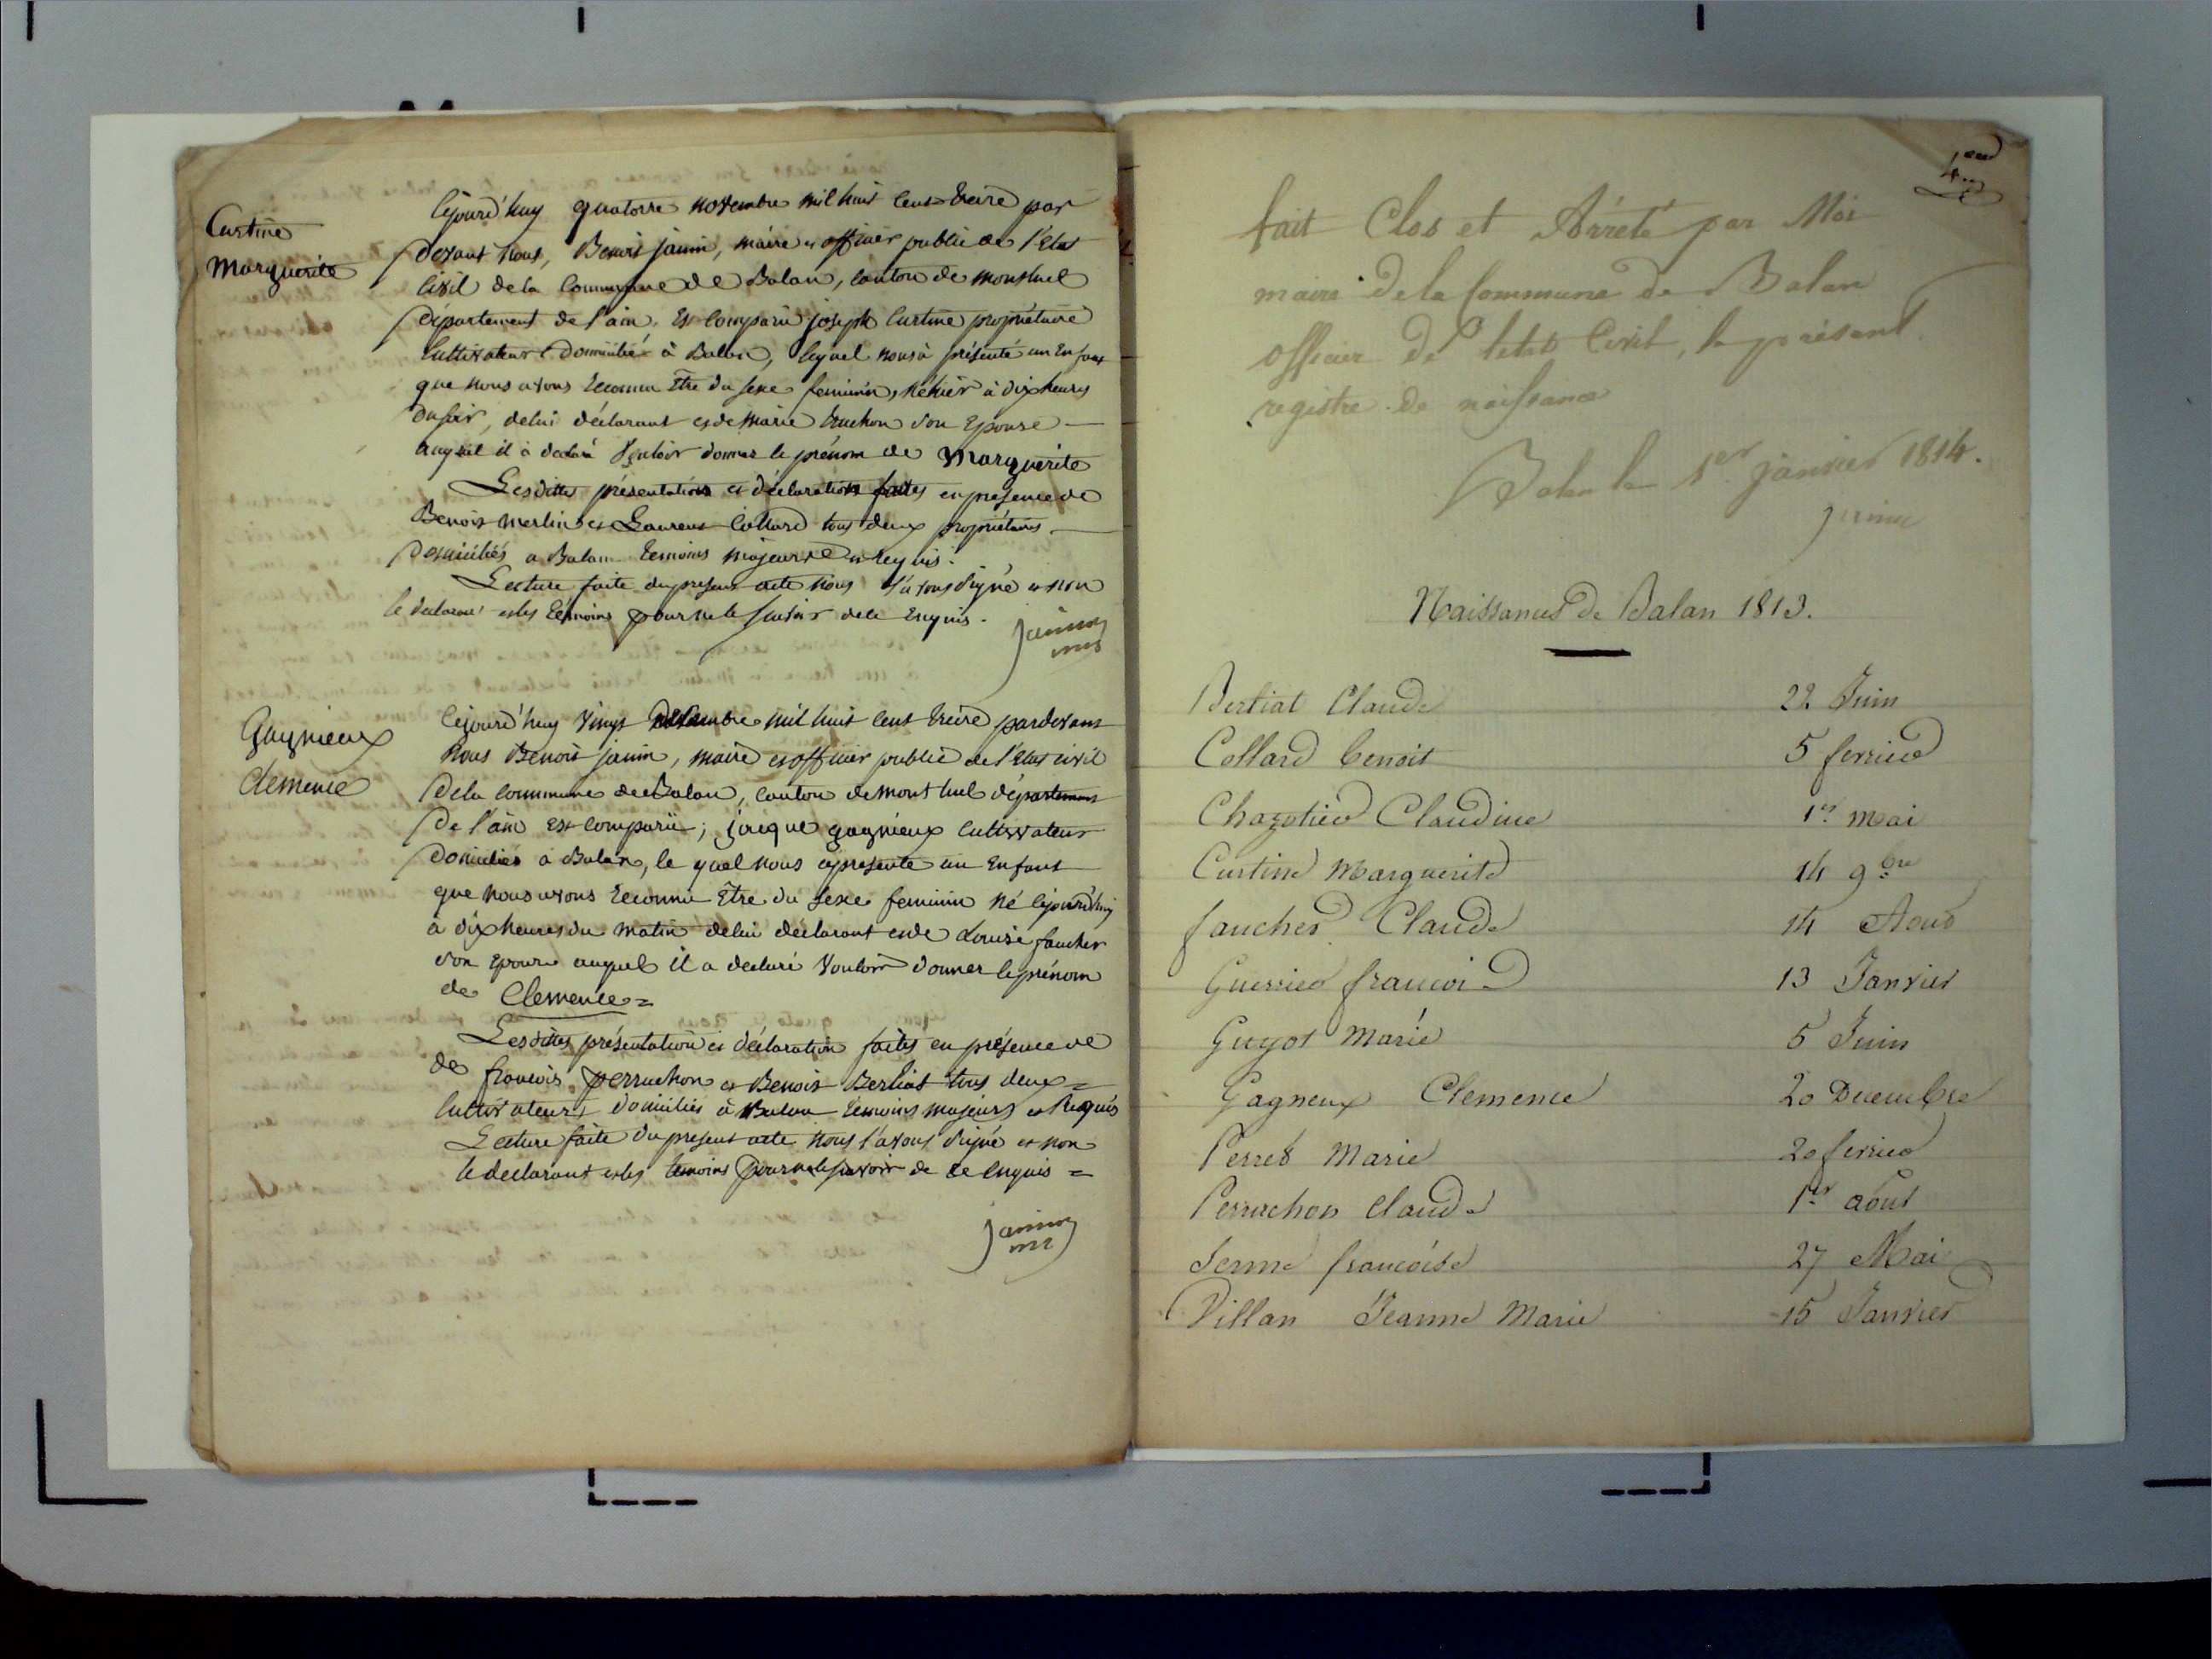 Curtine
Marguerite
Cejourd'huy quatorze novembre mil huit cent treize par
devant nous, Benoit janin, maire et officier public de l'Etat
Civil de la Commune de Balan, canton de montluel
département de l'ain. Est comparu joseph Curtine propriétaire
Cultivateur domicilié à Balan, lequel nous à présenté un Enfant
que nous avons Reconnu Être du sexe feminin, né hier à dix heures
du soir, de lui déclarant et de Marie son Epouse
auquel il à declaré Vouloir donner le prénom de Marguerite
Lesdittes présentation et déclaration faites en presence de
Benoit Merlin et Laurent Collard tous deux propriétaires
domiciliés a Balan temoins majeurs et Requis.
Lecture faite du present acte nous l'avons signé et non
le declarant et les témoins pour ne le savoir de ce Enquis.
janin
mre
Gagnieux
Clemence
Cejourd'huy Vingt decembre mil huit cent treize pardevant
Nous Benoit janin, maire et officier public de l'Etat civil
De la commune de Balan, canton de mont luel département
De l'ain est comparu; jacque gagnieux Cultivateur
domicilié à Balan, le quel nous a presenté un Enfant
que nous avons Reconnu Être du sexe feminin né Cejourd'huy
à dix heures du matin de lui déclarant et de Louise faucher
son Epouse auquel il a declaré Vouloir donner le prénom
de Clemence =
Lesdittes présentation et déclaration faites en présence de
de francois perruchon et Benoit Bertiat tous deux =
Cultivateurs domiciliés à Balan temoins majeurs et Requis
Lecture faite du present acte nous l'avons signé et non
le declarant et les temoins pour ne le savoir de ce enquis =
janin
mre
fait Clos et Arrété par Moi
maire de la Commune de Balan
officier de l'etat Civil, le présent
registre de naissance
Balan le 1er janvier 1814.
janin
Naissances de Balan 1813.
Bertiat Claude 22 Juin
Collard benoit 5 fevrier
Chazotier Claudine 1er mai
Curtine Marguerite 14 9bre
faucher Claude 14 Aout
Guerrier francois 13 Janvier
Guyot Marie 5 Juin
Gagneux Clemence 20 Decembre
Perret Marie 20 fevrier
Perruchon Claude 1er aout
Serme francoise 27 Mai
Villan Jeanne Marie 15 Janvier